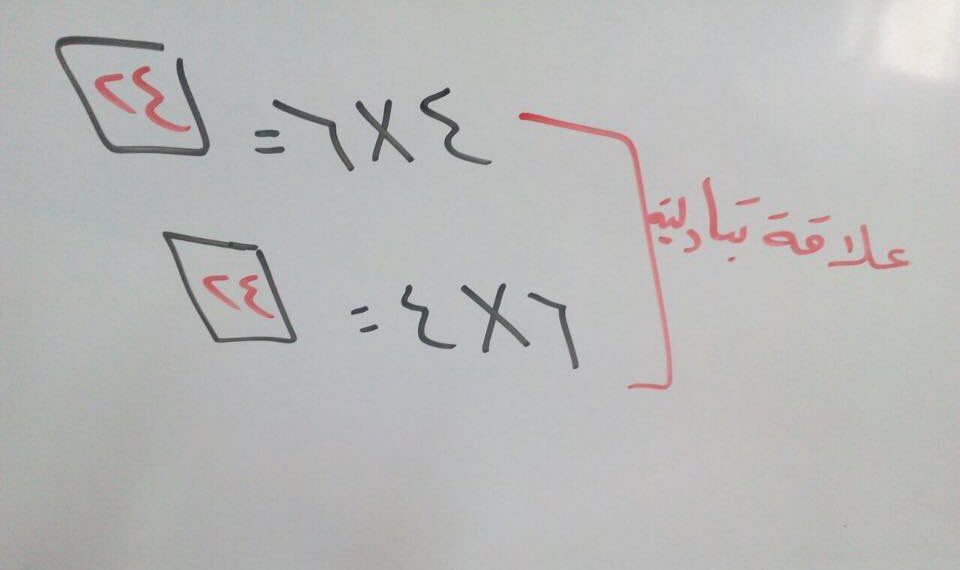 ٤ × ٦ = ٢٤
علاقة تبادلية
٦ × ٤ = ٢٤